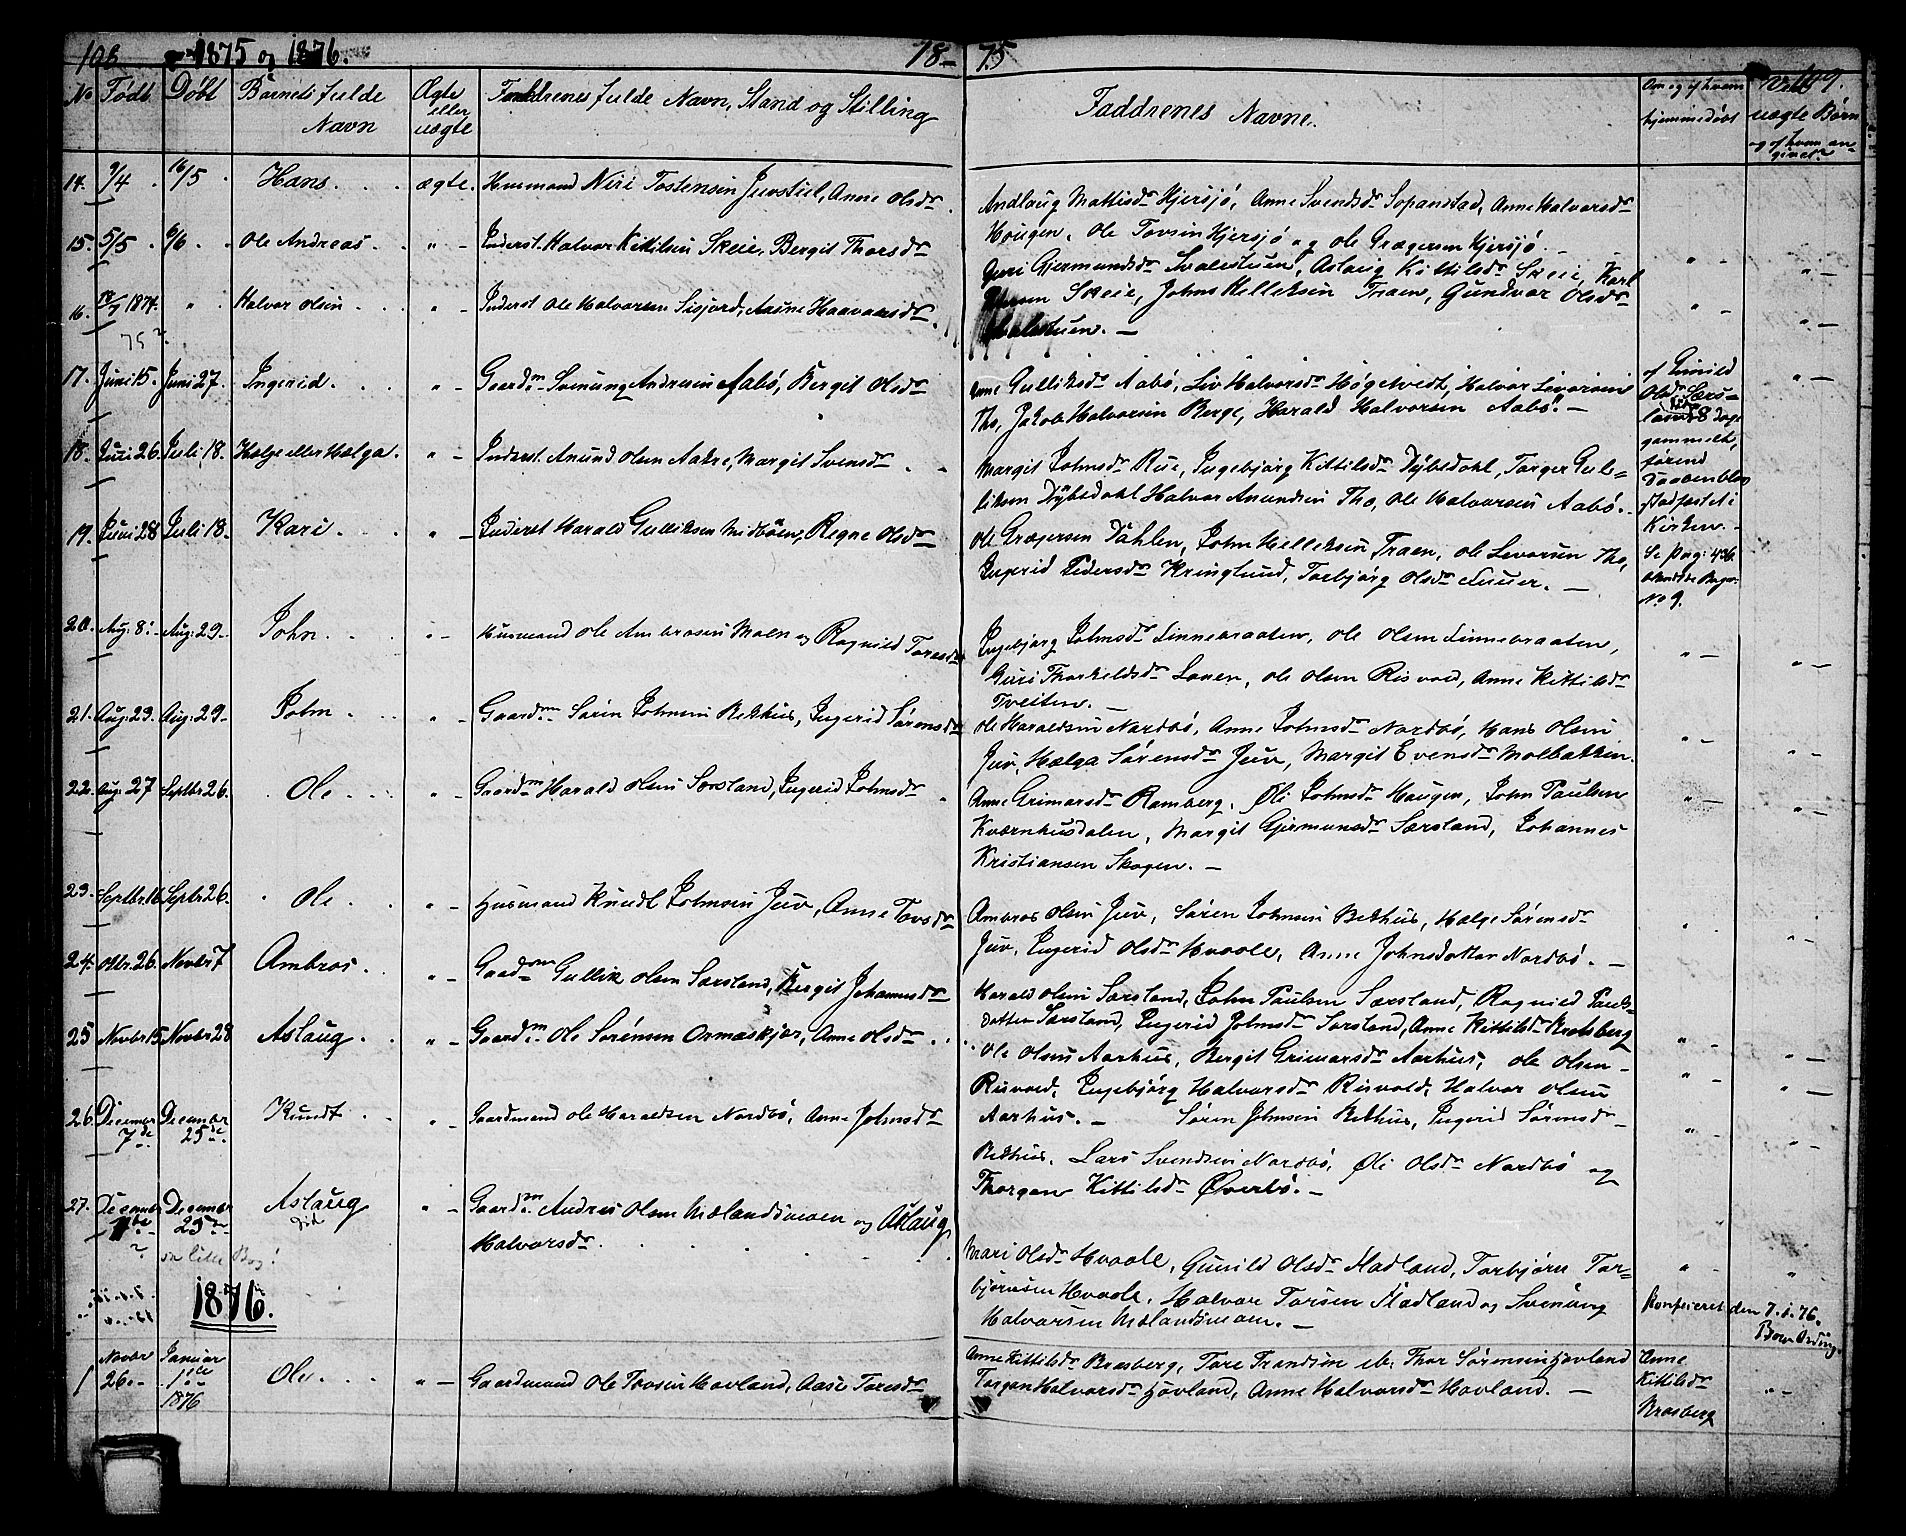 108 1875 og 1876. 18- 75 109.
No Født Døbt Barnets fulde Navn Ægte eller uægte Forældrenes fulde Navn, Stand og Stilling Faddrenes Navne. Om og af hvem hjemmedøbt uægte Børn og af hvem angivet
14. 9/4 16/5 Hans. ægte. Husmand Niri Tostensen Juvstiel, Anne Olsdr
Andlaug Mattisdr Hjersjø, Anne Svendsdr Sopanstad, Anne Halvorsdr
Hougen, Ole Tovsen Hjersjø og Ole Grægersen Hjersjø.
15. 5/5 6/6 Ole Andreas. " - Inderst. Halvor Kittilsen Skeie, Bergit Thorsdr
Guri Gjermundsdr Svalestuen, Aslaug Kittilsdr Skeie, Karl
Skeie, John Kelleksen Traen, Gundvor Olsdr
16. 1874. " Halvor Olsen " - Inderst Ole Halvorsen Sisjord, Aasne Haavarsdr
75?
17. Juni 15. Juni 27. Ingerid. " - Gaardm. Svenung Andresen Aabø, Bergit Olsdr
Anne Gulliksdr Aabø, Liv Halvorsdr Høgetvedt, Halvor Livorsen
Tho, Jakob Halvorsen Berge, Harald Halvorsen Aabø. -
af Gunild
Olsdr Særs-
land 8 Dage
gammelt,
førend
Daaben blev
stadfæstet i
Kirken. -
Se Pag: 436
No 9.
18. Juni 26. Juli 18. Helge eller Helga. " - Inderst. Anund Olsen Aakre, Margit Svensdr
Margit Johnsdr Rue, Ingebjørg Kittilsdr Dybedahl, Torger Gul-
liksen Dybedahl Halvor Anundsen Tho, Ole Halvorsen Aabø.
19. Juni 28 Juli 18. Kari. " - Inderst Harald Gulliksen Midbøen, Regne Olsdr
Ole Grægersen Dahlen, John Kelleksen Traen, Ole Livorsen Tho,
Ingerid Pedersdr Kringlund, Torbjørg Olsdr Luuer. -
20. Aug: 8. Aug: 29. John. " - Husmand Ole Ambrosen Moen og Ragnild Toresdr
Ingebjørg Johnsdr Linnebraaten, Ole Olsen Linnebraaten,
Guri Thorkildsdr Lonen, Ole Olsen Risvold, Anne Kittilsdr
Tveiten. -
21. Aug: 23. Aug: 29. John. " - Gaardm. Søren Johnsen Bekhus, Ingerid Sørensdr
Ole Haraldsen Nordbø, Anne Johnsdr Nordbø, Hans Olsen
Juv, Helga Sørensdr Juv, Margit Evensdr Molbakken.
22. Aug: 27 Septbr 26. Ole. " - Gaardm Harald Olsen Særsland, Ingerid Johnsdr
Anne Grimarsdr Ramberg, Øli Johnsdr Haugen, John Paulsen
Kværnhusdalen, Margit Gjermunsdr Særsland, Johannes
Kristiansen Skogen. -
23. Septbr 16. Septbr 26. Ole. " - Husmand Knudt Johnsen Juv, Anne Tovsdr
Ambros Olsen Juv, Søren Johnsen Bekhus, Helge Sørensdr
Juv, Ingerid Olsdr Hvaale, Anne Johnsdotter Nordbø. -
24. Oktr. 26. Novbr 7 Ambros. " - Gaardm Gullik Olsen Særsland, Bergit Johannesdr
Harald Olsen Særsland, John Paulsen Særsland, Ragnild Pauls-
datter Særsland, Ingerid Johnsdr Særsland, Anne Kittilsdr Krosberg
25 Novbr 15 Novbr 28 Aslaug. " - Gaardm. Ole Sørensen Ormaskjær, Anne Olsdr
Ole Olsen Aarhus, Bergit Grimarsdr Aarhus, Ole Olsen
Risvold, Ingebjørg Halvorsdr Risvold, Halvor Olsen
Aarhus. -
26. Decemer 7de Decembr 25de Knudt. " - Gaardmand Ole Haraldsen Nordbø, Anne Johnsdr
Søren Johnsen Bekhus, Ingerid Sørensdr
Bekhus, Lars Svendsen Nordbø, Øli Olsdr Nordbø og
Thorgon Kittilsdr Øverbø. -
27. Decembr Decembr 25de Aslaug " - Gaardm. Andres Olsen Mælandsmoen og Aslaug
Halvorsdr.
Mari Olsdr Hvaale, Gunild Olsdr Fladland, Torbjørn Tor-
bjørnsen Hvaale, Halvor Torsen Fladland og Svenung
Halvorsen Mælandsmoen. -
Konfereret den 7.1.76.
1876.
1 Novbr 26. Januar 1ste 1876 Ole. " - Gaardmand Ole Tovsen Hovland, Aase Toresdr
Anne Kittilsdr Brosberg, Tore Trondsen ib, Thor Sørensen Hovland
Torgon Halvorsdr Hovland, Anne Halvorsdr Hovland. -
Anne
Kittilsdr
Brosberg